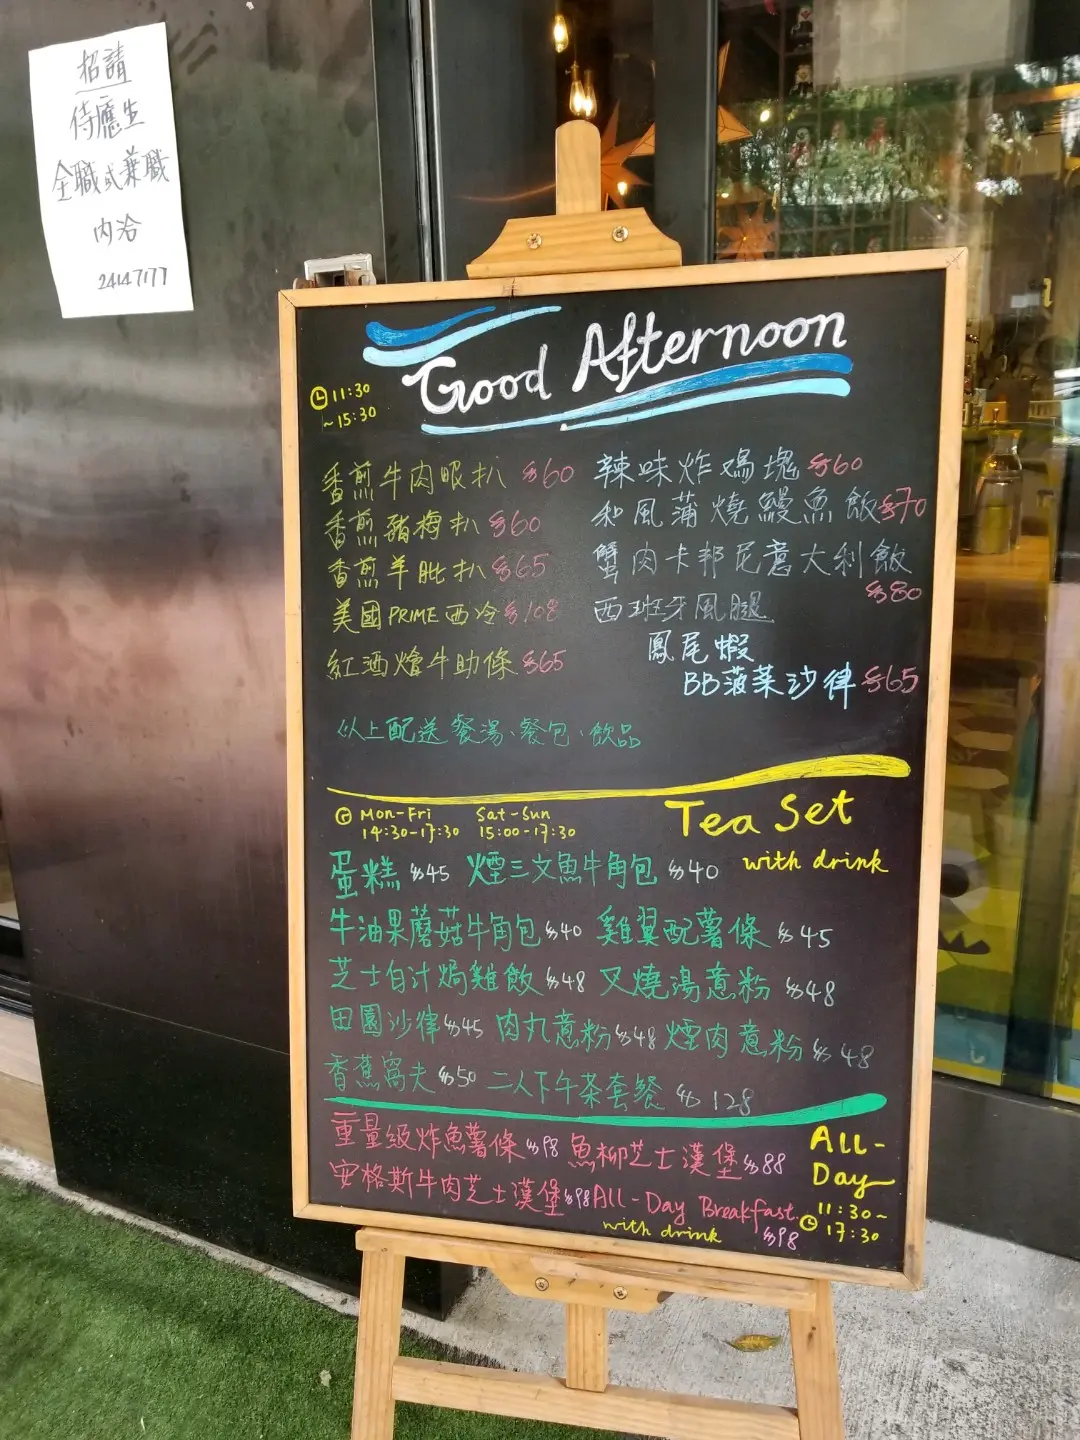 招請
侍應生
全職或兼職
內洽
24147177
Good Afternoon
11:30
~15:30
香煎牛肉眼扒 $60
香煎豬梅扒 $60
香煎羊肶扒 $65
美國PRIME西冷$108
紅酒燴牛助條 $65
辣味炸鷄塊 $60
和風蒲燒鰻魚飯$70
蟹肉卡邦尼意大利飯
$80
西班牙風腿
鳳尾蝦
BB菠菜沙律 $65
以上配送餐湯、餐包、飲品
Mon-Fri Sat-Sun
14:30-17:30 15:00-17:30
Tea Set
with drink
蛋糕 $45 煙三文魚牛角包 $40
牛油果蘑菇牛角包 $40 雞翼配薯條 $45
芝士白汁焗雞飯 $48 叉燒湯意粉 $48
田園沙律 $45 肉丸意粉 $48 煙肉意粉 $48
香蕉窩夫 $50 二人下午茶套餐 $128
重量級炸魚薯條 $98 魚柳芝士漢堡 $88
安格斯牛肉芝士漢堡 $98 All-Day Breakfast
with drink $98
ALL-
Day
11:30~
17:30